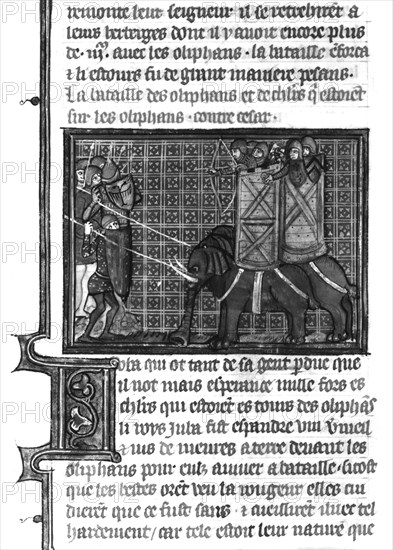 remonte leur seigneur il se retrehirēt a
leurs herberges dont il y auont encore plus
de .iiij. avec les oliphans. la bataille eforca
& li estours fu de grant maniere pesans.
La bataille des oliphans et de chl̄rs q̄ estoiēt
sur les oliphans. contre cesar.
Iula qui ot tant de sa gent pdue que
il not mais esperance mille fors es
chl̄rs qui estoiēt es tours des oliphās
li roys Iula fist espandre vin v̄meil
& ius de meures a terre deuant les
oliphans pour eulz auiuer a bataille. si tost
que les bestes orēt veu la rougeur elles cui
dierēt que ce fust sans. & aueissirēt iluec tel
hardement/ car tele estoit leur nature que